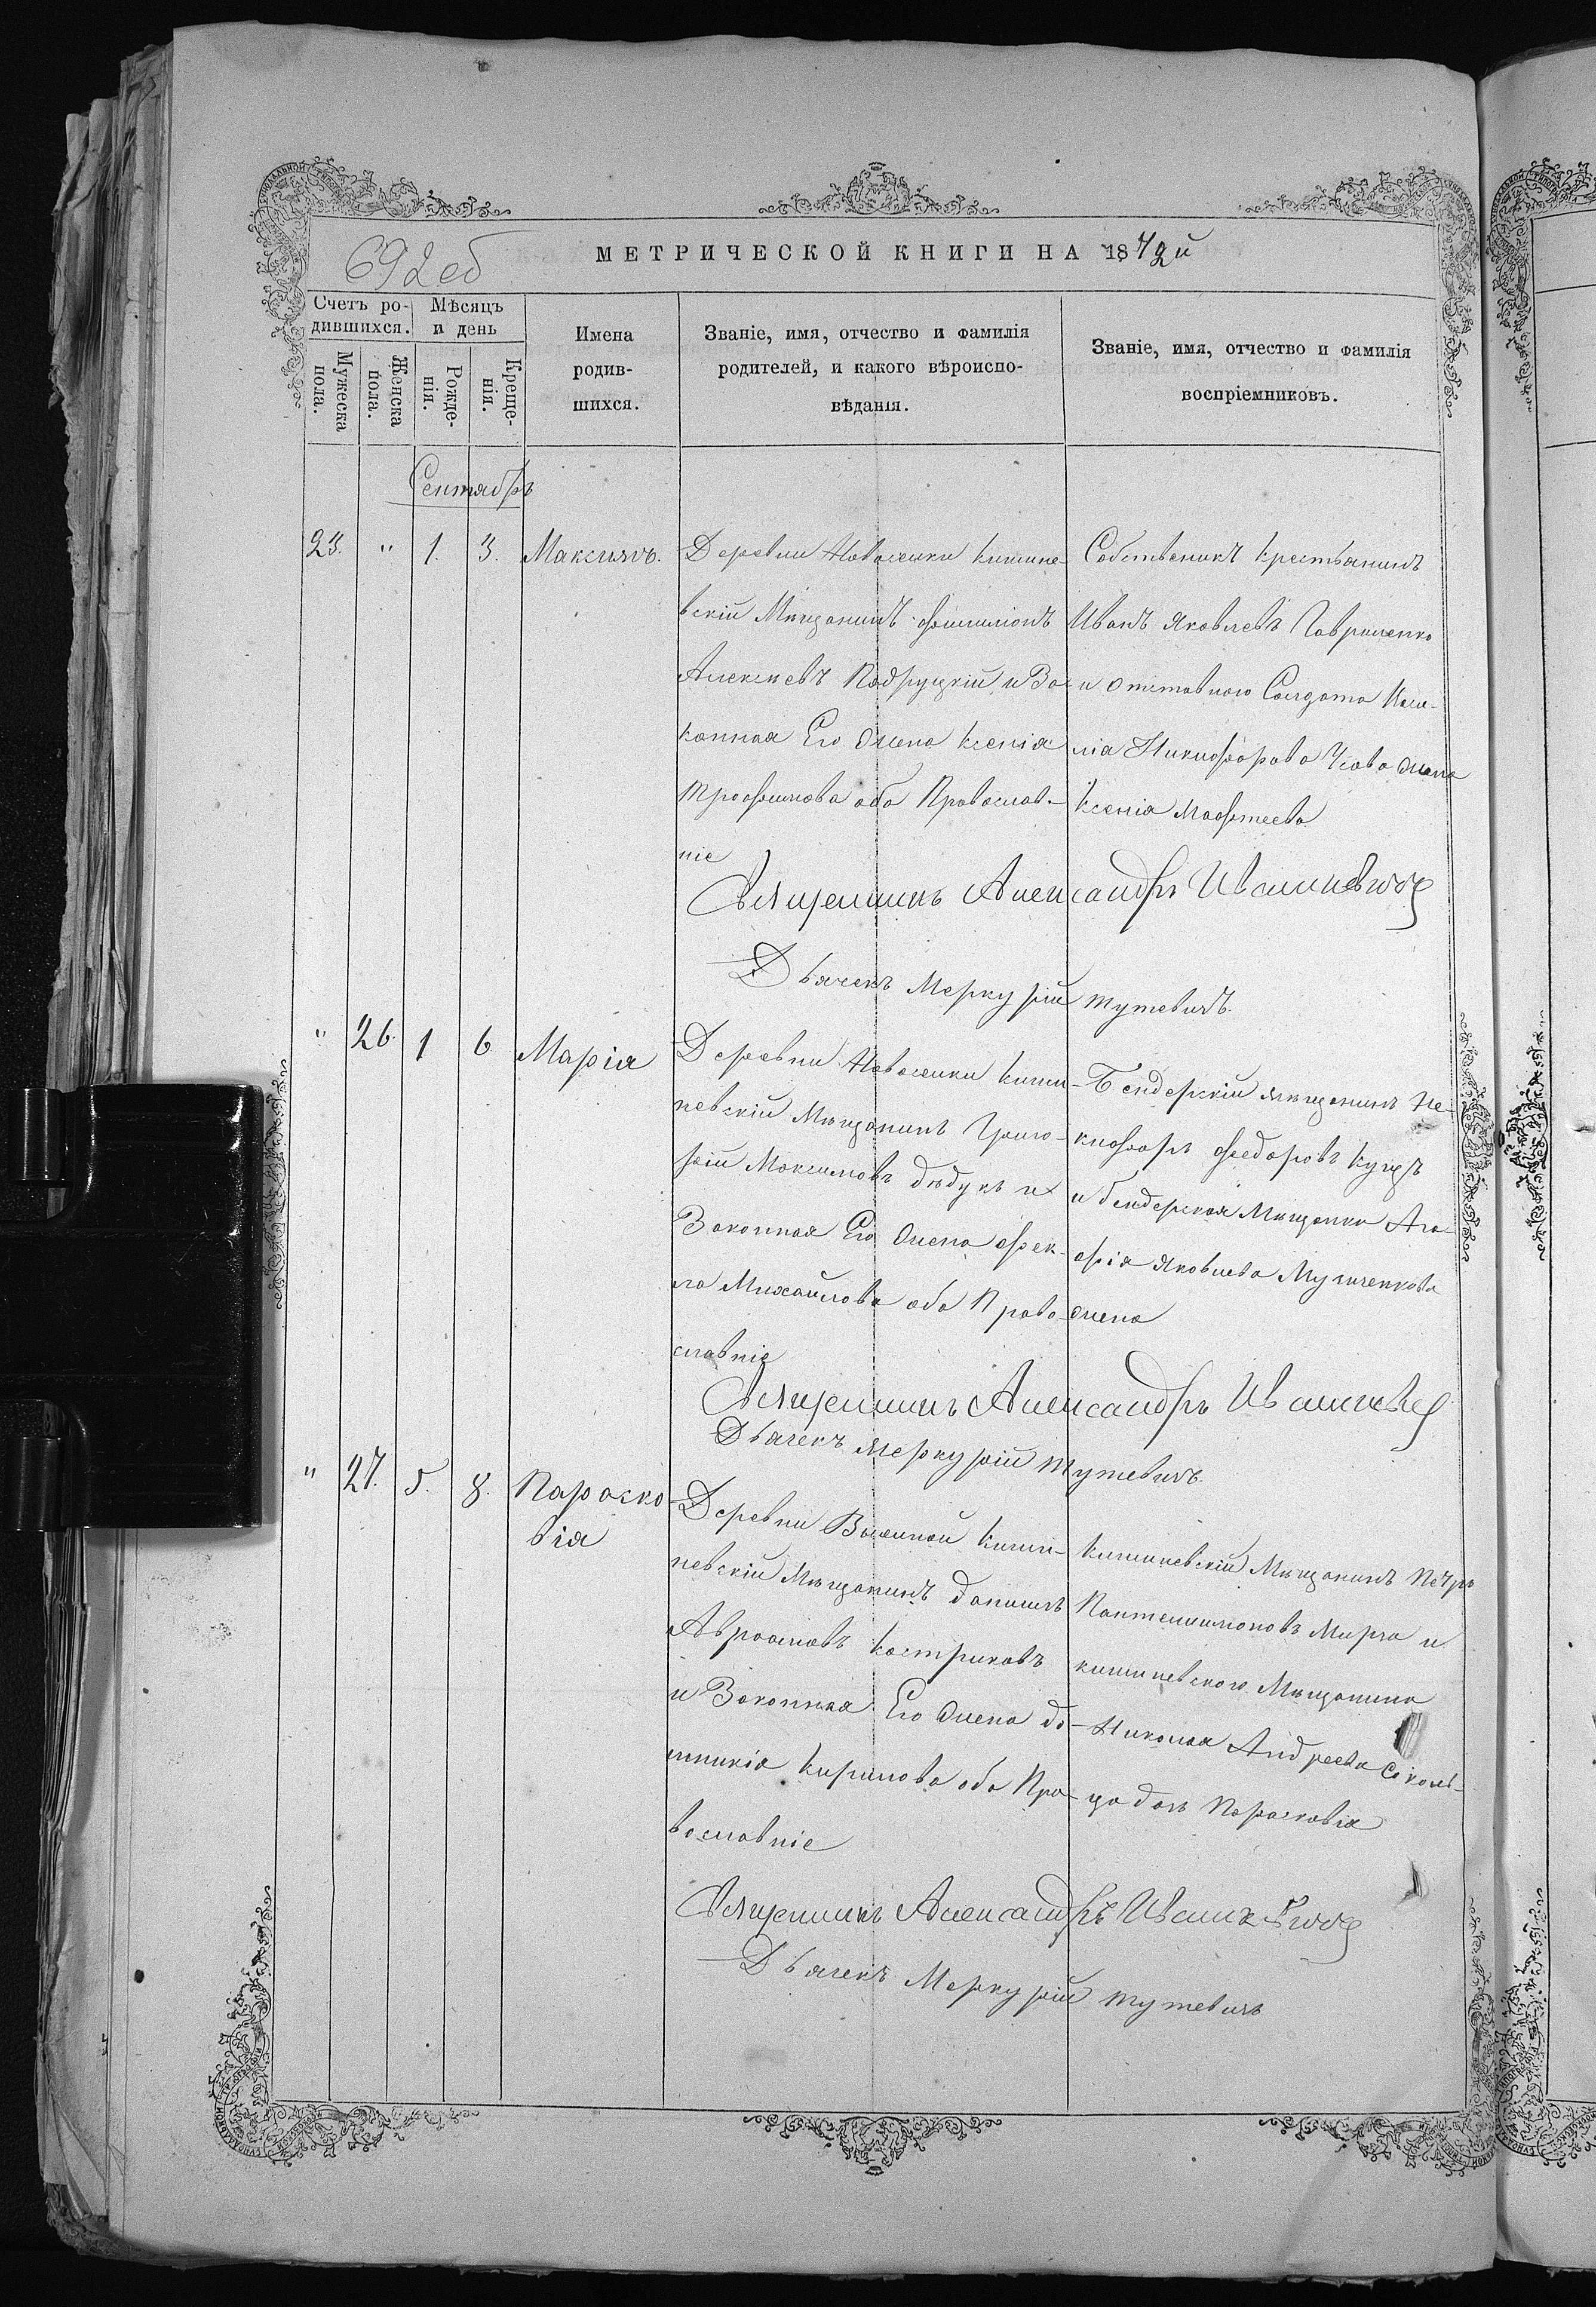 692об
МЕТРИЧЕСКОЙ КНИГИ НА 1872й
Счетъ ро-
дившихся.
Мѣсяцъ
и день
Мужеска
пола.
Женска
пола.
Рожде-
нія.
Креще-
нія.
Имена
родив-
шихся.
Званіе, имя, отчество и фамилія
родителей, и какого вѣроиспо-
вѣданія.
Званіе, имя, отчество и фамилія
воспріемниковъ.
Сентябрь
23. " 1. 3. Максимъ.
Деревни Новоселки Кишине-
вскій Мѣщанинъ Филимонъ
Алексѣевъ Подруцкій и За-
конная Его Жена Ксенія
Трофимова оба Православ-
ніе
Собственикъ Крестьянинъ
Иванъ Яковлевъ Гавриленко
и отставного Солдата
Никифорова Жена
Ксенія Мафтеева
Священникъ Александръ
Дьячекъ Меркурій Тутевичъ.
" 26. 1 6 Марія
Деревни Новоселки Киши-
невскій Мѣщанинъ Григо-
рій Максимовъ Дѣдукъ и
Законная Его Жена Фек-
ла Михайлова оба Право-
славніе
Бендерскій мѣщанинъ Не-
кифоръ Федоровъ Куцъ
и бендерская Мѣщанка Ага-
фія Яковлева
жена
Священникъ Александръ
Дьячекъ Меркурій Тутевичъ.
" 27. 5. 8. Параско
вія
Деревни Киши-
невскій Мѣщанинъ Данилъ
Авраамовъ Костриковъ
и Законная Его Жена До-
мникія Кирилова оба Пра-
вославніе
Кишиневскій Мѣщанинъ Петръ
Пантелимоновъ Мирза и
кишиневского Мѣщанина
Николая Андреева Соколь-
ца дочь Парасковія
Священникъ Александръ
Дьячекъ Меркурій Тутевичъ